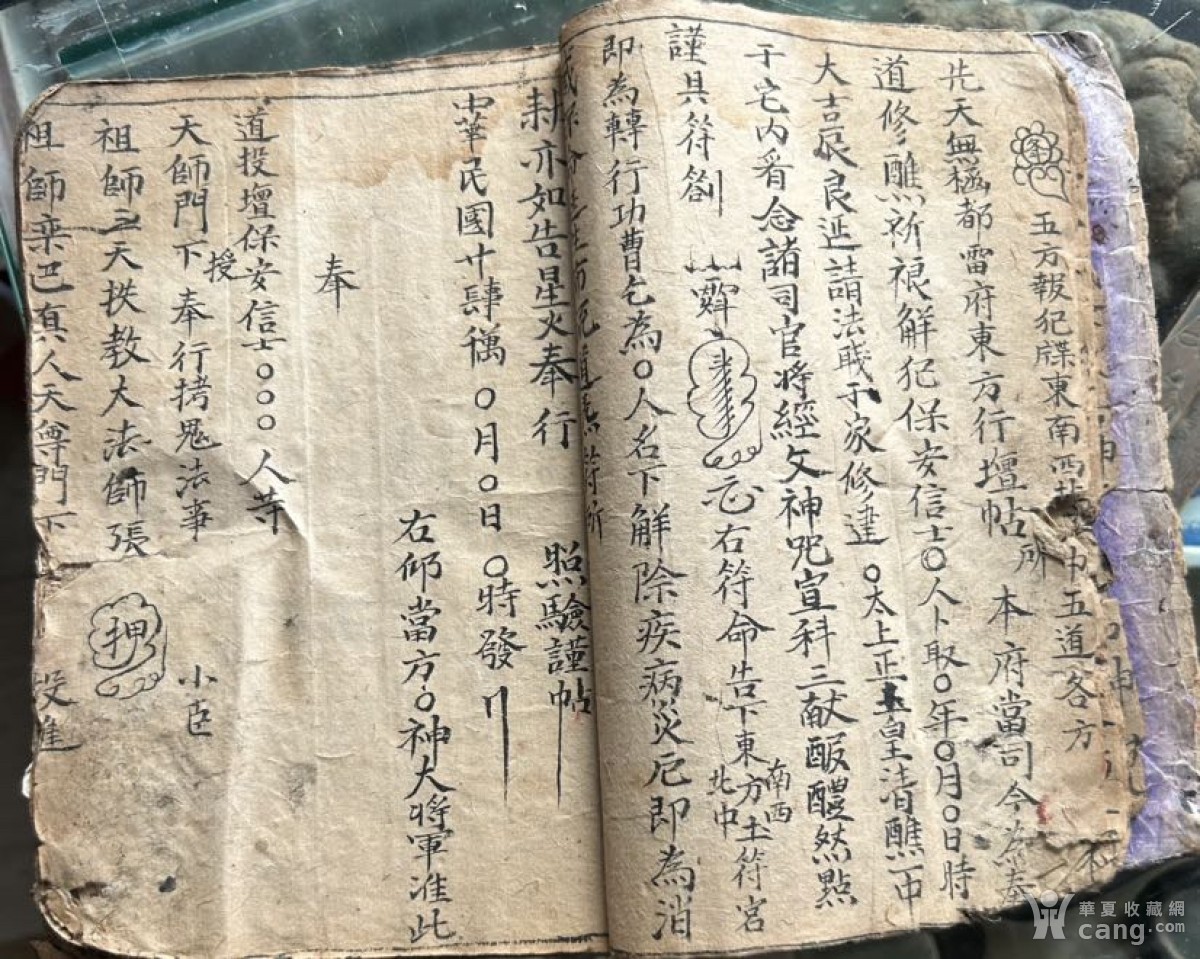 五方報犯牒東南西北中五道各方
先天無極都雷府東方行壇帖所 本府當司今為奉
道修醮祈禳解犯保安信士〇人卜取〇年〇月〇日時
大吉辰良延請法職于家修建〇太上正一玉皇清醮一中
于宅内看念諸司官將經文神咒宣科三献酘醴然點
謹具符劄
右符命告下東方土符宮
南西
北中
即為轉行功曹乞為〇人名下解除疾病災厄即為消
耕亦如告星火奉行 照驗謹帖
中華民國廿肆禩〇月〇日〇時發行
右仰當方〇神大將軍准此
奉
道投壇保安信士〇〇〇人等
天師門下授奉行拷鬼法事 小臣
祖師三天扶教大法師張
押
祖師欒巴真人天尊門下 投進
華夏收藏網
cang.com